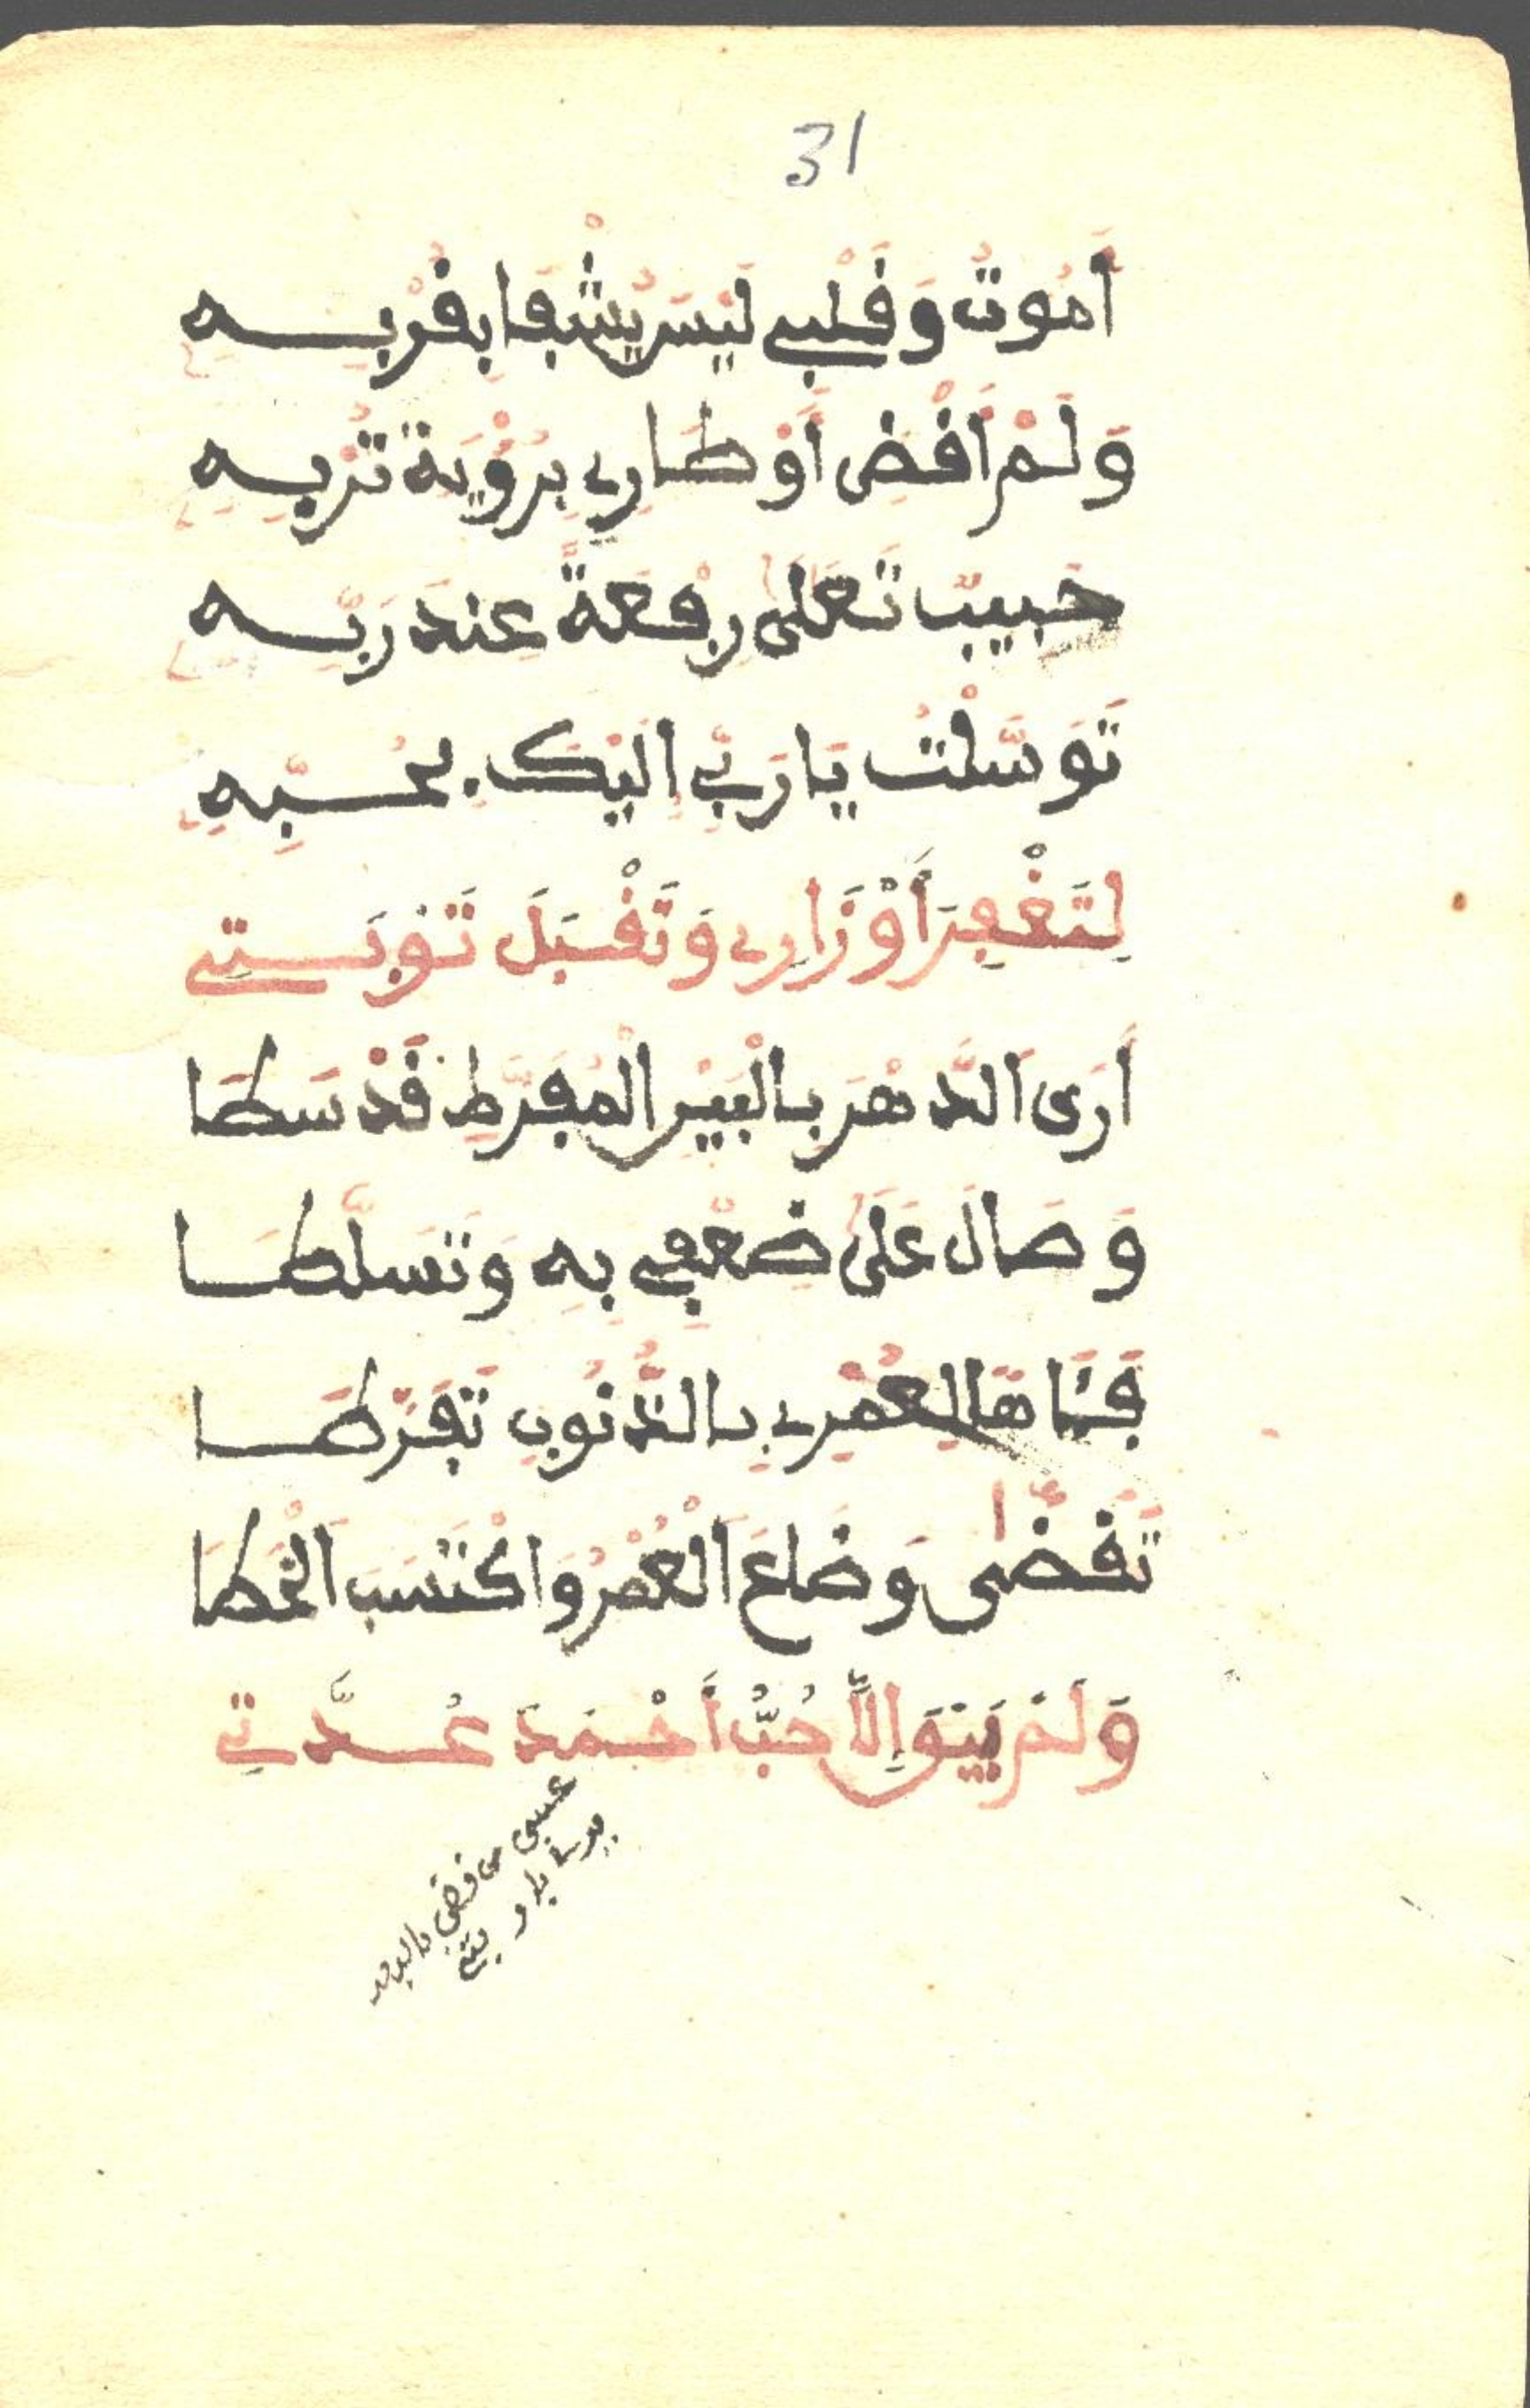 31
أَمُوتُ وَقَلْبِي لَيْسَ يُشْفَا بِقُرْبِهِ
وَلَمْ أَقْضِ أَوْطَارِي بِرُؤْيَةِ تُرْبِهِ
حَبِيبٌ تَعَلَى رِفْعَةً عِنْدَ رَبِّهِ
تَوَسَّلْتُ يَا رَبِّي إِلَيْكَ بِحُبِّهِ
لِتَغْفِرَ أَوْزَارِي وَتَقْبَلَ تَوْبَتِي
أَرَى الدَّهْرَ بِالْبَيْنِ الْمُفَرِّطِ قَدْ سَطَا
وَصَالَ عَلَى ضُعْفِي بِهِ وَتَسَلَّطَا
بِالذُّنُوبِ تَفَرَّطَا
تَقَضَّى وَضَاعَ الْعُمْرُ وَاكْتَسَبَ الْخَطَا
وَلَمْ يَبْقَ إِلَّا حُبُّ أَحْمَدَ عُدَّتِي